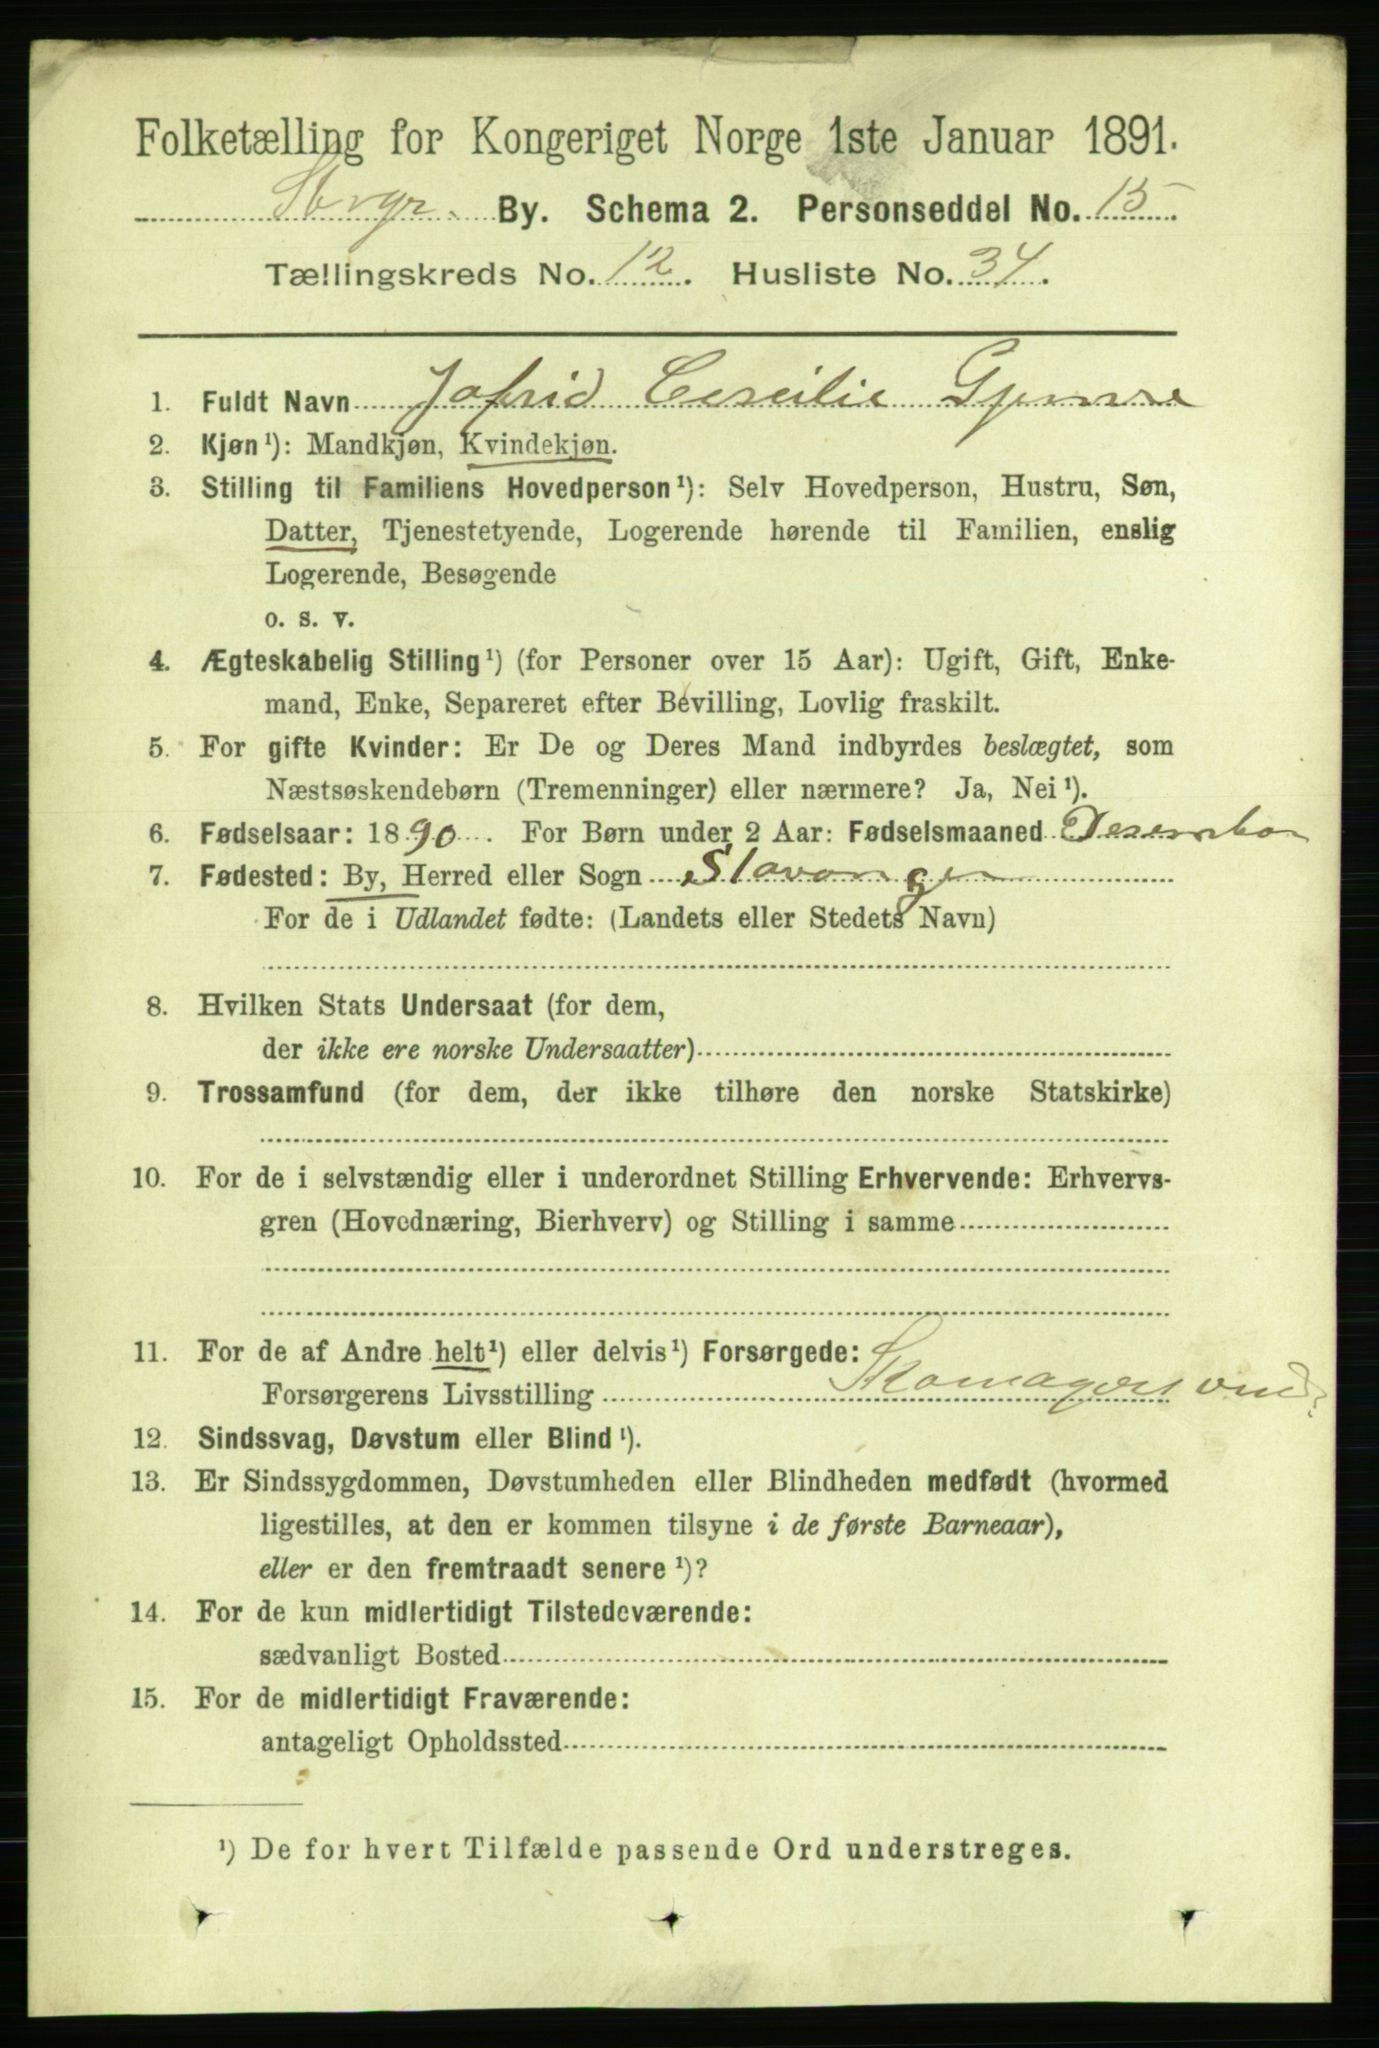 Folketælling for Kongeriget Norge 1ste Januar 1891.
Stvgr. By. Schema 2. Personseddel No. 15.
Tællingskreds No. 12. Husliste No. 34.
1. Fuldt Navn Jofrid Cecilie
2. Kjøn¹): Mandkjøn, Kvindekjøn.
3. Stilling til Familiens Hovedperson¹): Selv Hovedperson, Hustru, Søn,
Datter, Tjenestetyende, Logerende hørende til Familien, enslig
Logerende, Besøgende
o. s. v.
4. Ægteskabelig Stilling¹) (for Personer over 15 Aar): Ugift, Gift, Enke-
mand, Enke, Separeret efter Bevilling, Lovlig fraskilt.
5. For gifte Kvinder: Er De og Deres Mand indbyrdes beslægtet, som
Næstsøskendebørn (Tremenninger) eller nærmere? Ja, Nei¹).
6. Fødselsaar: 1890. For Børn under 2 Aar: Fødselsmaaned Desember
7. Fødested: By, Herred eller Sogn Stavanger
For de i Udlandet fødte: (Landets eller Stedets Navn)
8. Hvilken Stats Undersaat (for dem,
der ikke ere norske Undersaatter)
9. Trossamfund (for dem, der ikke tilhøre den norske Statskirke)
10. For de i selvstændig eller i underordnet Stilling Erhvervende: Erhvervs-
gren (Hovednæring, Bierhverv) og Stilling i samme
11. For de af Andre helt¹) eller delvis¹) Forsørgede:
Forsørgerens Livsstilling Skomagersvend
12. Sindssvag, Døvstum eller Blind¹).
13. Er Sindssygdommen, Døvstumheden eller Blindheden medfødt (hvormed
ligestilles, at den er kommen tilsyne i de første Barneaar),
eller er den fremtraadt senere¹)?
14. For de kun midlertidigt Tilstedeværende:
sædvanligt Bosted
15. For de midlertidigt Fraværende:
antageligt Opholdssted
¹) De for hvert Tilfælde passende Ord understreges.